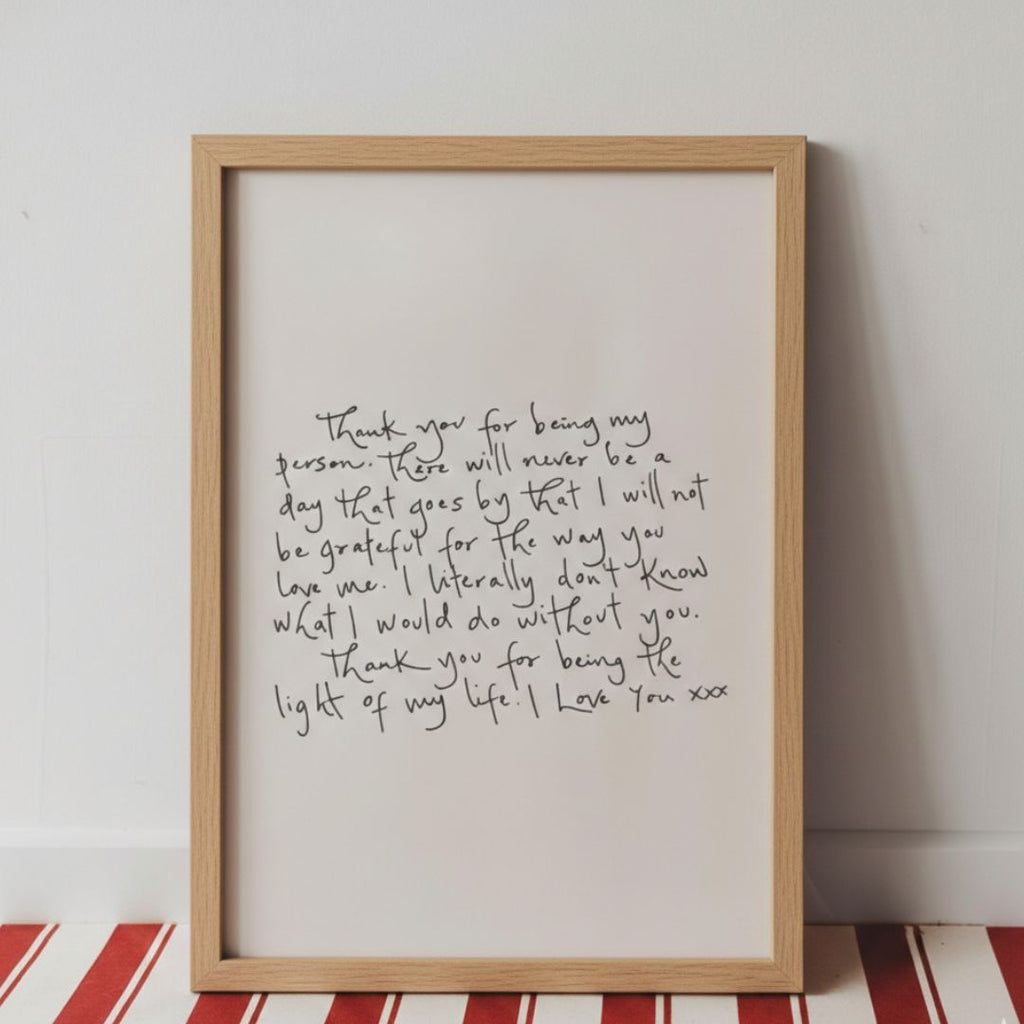 Thank you for being my
person. There will never be a
day that goes by that I will not
be grateful for the way you
love me. I literally don't know
what I would do without you.
Thank you for being the
light of my life. I Love You xxx